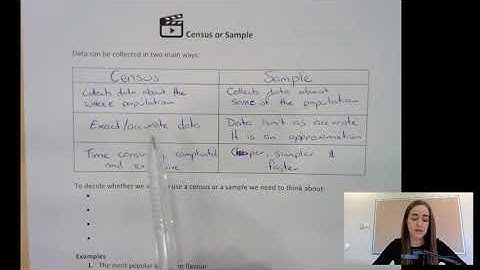 Census or Sample
Data can be collected in two main ways:
Census
Sample
Collects data about the
WHOLE population
Collects data about
some of the population
Exact/accurate data
Data isn't as accurate
It is an approximation
Time consuming, complicated
and
Cheaper, simpler &
faster
To decide whether we use a census or a sample we need to think about:
Examples
1. The most popular flavour